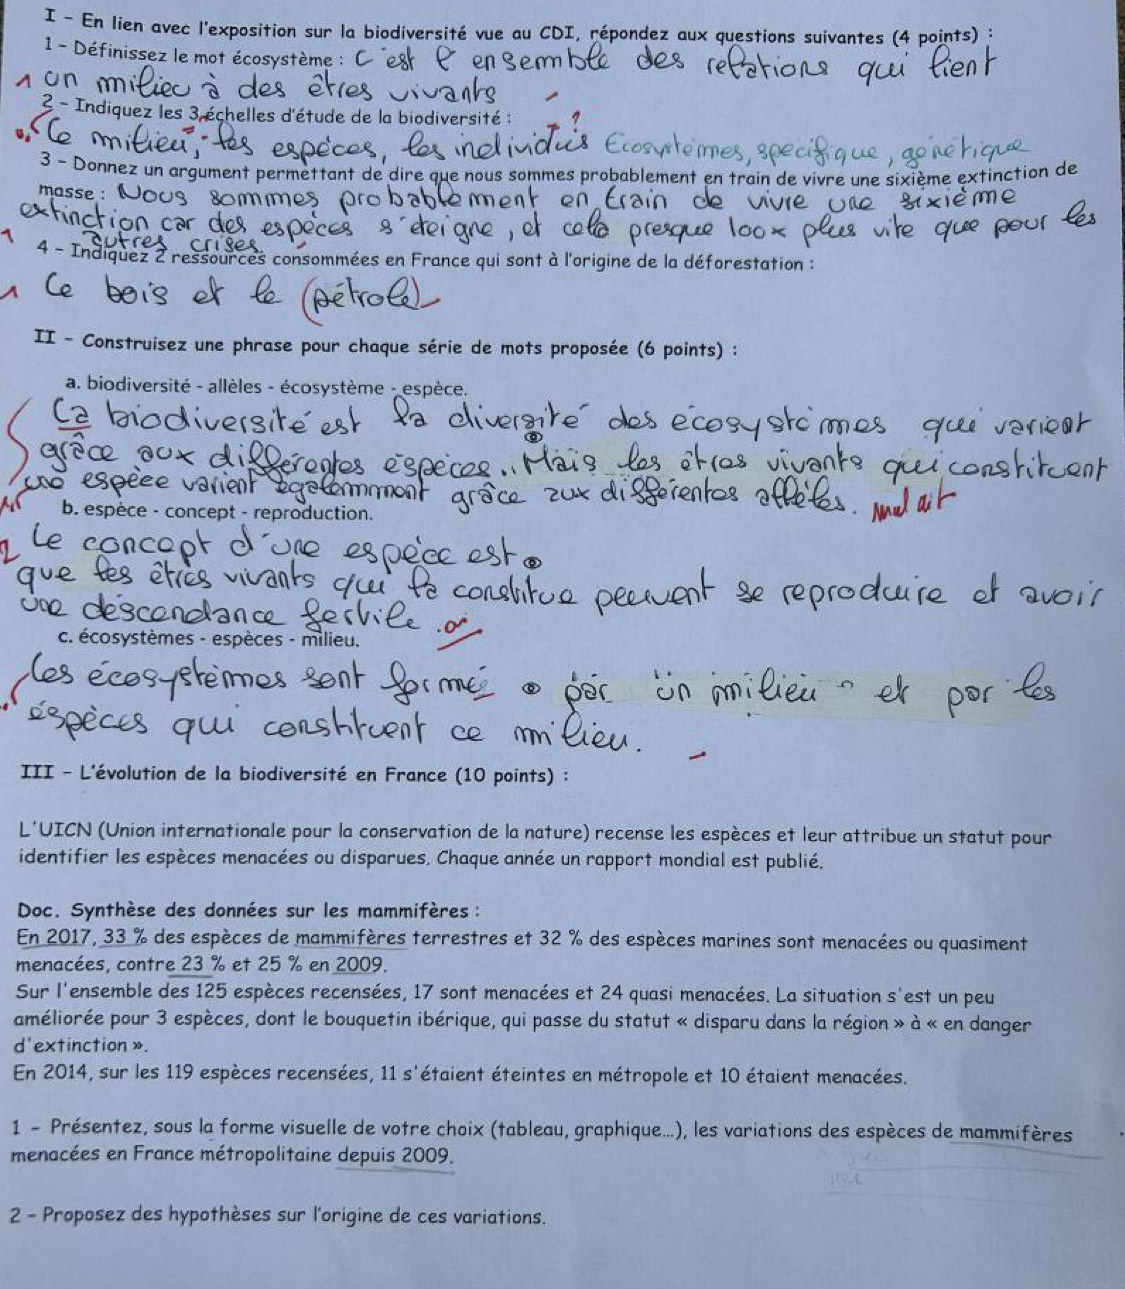 I - En lien avec l'exposition sur la biodiversité vue au CDI, répondez aux questions suivantes (4 points) :
1 - Définissez le mot écosystème : C'est l'ensemble des relations qui lient
1 un milieu à des êtres vivants
2 - Indiquez les 3 échelles d'étude de la biodiversité :
Le milieu, les espèces, les individus ? Ecosystèmes, spécifique, génétique
3 - Donnez un argument permettant de dire que nous sommes probablement en train de vivre une sixième extinction de
masse : Nous sommes probablement en train de vivre une sixième
extinction car des espèces s'éteigne, et cela presque 100x plus vite que pour les
1 autres crises.
4 - Indiquez 2 ressources consommées en France qui sont à l'origine de la déforestation :
1 Le bois et le (pétrole)
II - Construisez une phrase pour chaque série de mots proposée (6 points) :
a. biodiversité - allèles - écosystème - espèce.
La biodiversité est la diversité des écosystèmes qui varient
grâce aux différentes espèces. Mais les êtres vivants qui constituent
une espèce varient également grâce aux différentes allèles. mal dit
b. espèce - concept - reproduction.
2 Le concept d'une espèce est
que les êtres vivants qui la constitue peuvent se reproduire et avoir
une descendance fertile. oi
c. écosystèmes - espèces - milieu.
Les écosystèmes sont formés par un milieu et par les
espèces qui constituent ce milieu.
III - L'évolution de la biodiversité en France (10 points) :
L'UICN (Union internationale pour la conservation de la nature) recense les espèces et leur attribue un statut pour
identifier les espèces menacées ou disparues. Chaque année un rapport mondial est publié.
Doc. Synthèse des données sur les mammifères :
En 2017, 33 % des espèces de mammifères terrestres et 32 % des espèces marines sont menacées ou quasiment
menacées, contre 23 % et 25 % en 2009.
Sur l'ensemble des 125 espèces recensées, 17 sont menacées et 24 quasi menacées. La situation s'est un peu
améliorée pour 3 espèces, dont le bouquetin ibérique, qui passe du statut « disparu dans la région » à « en danger
d'extinction ».
En 2014, sur les 119 espèces recensées, 11 s'étaient éteintes en métropole et 10 étaient menacées.
1 - Présentez, sous la forme visuelle de votre choix (tableau, graphique...), les variations des espèces de mammifères
menacées en France métropolitaine depuis 2009.
2 - Proposez des hypothèses sur l'origine de ces variations.